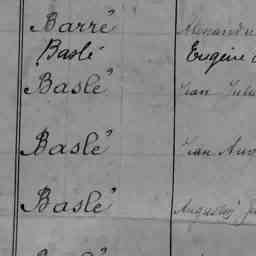 Barré Alexandre
Baslé Eugène
Baslé Jean Jule
Baslé Jean
Baslé Auguste